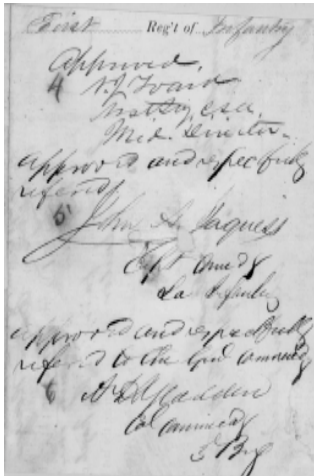 First Reg't of Infantry
Approved,
4
Med. Director
approved and respectfully
refered
5
John A. Jaquess
Capt Comdg
La Infantry
approved and respectfully
refered to the Genl Commndg
6
Col Commndg
Brig